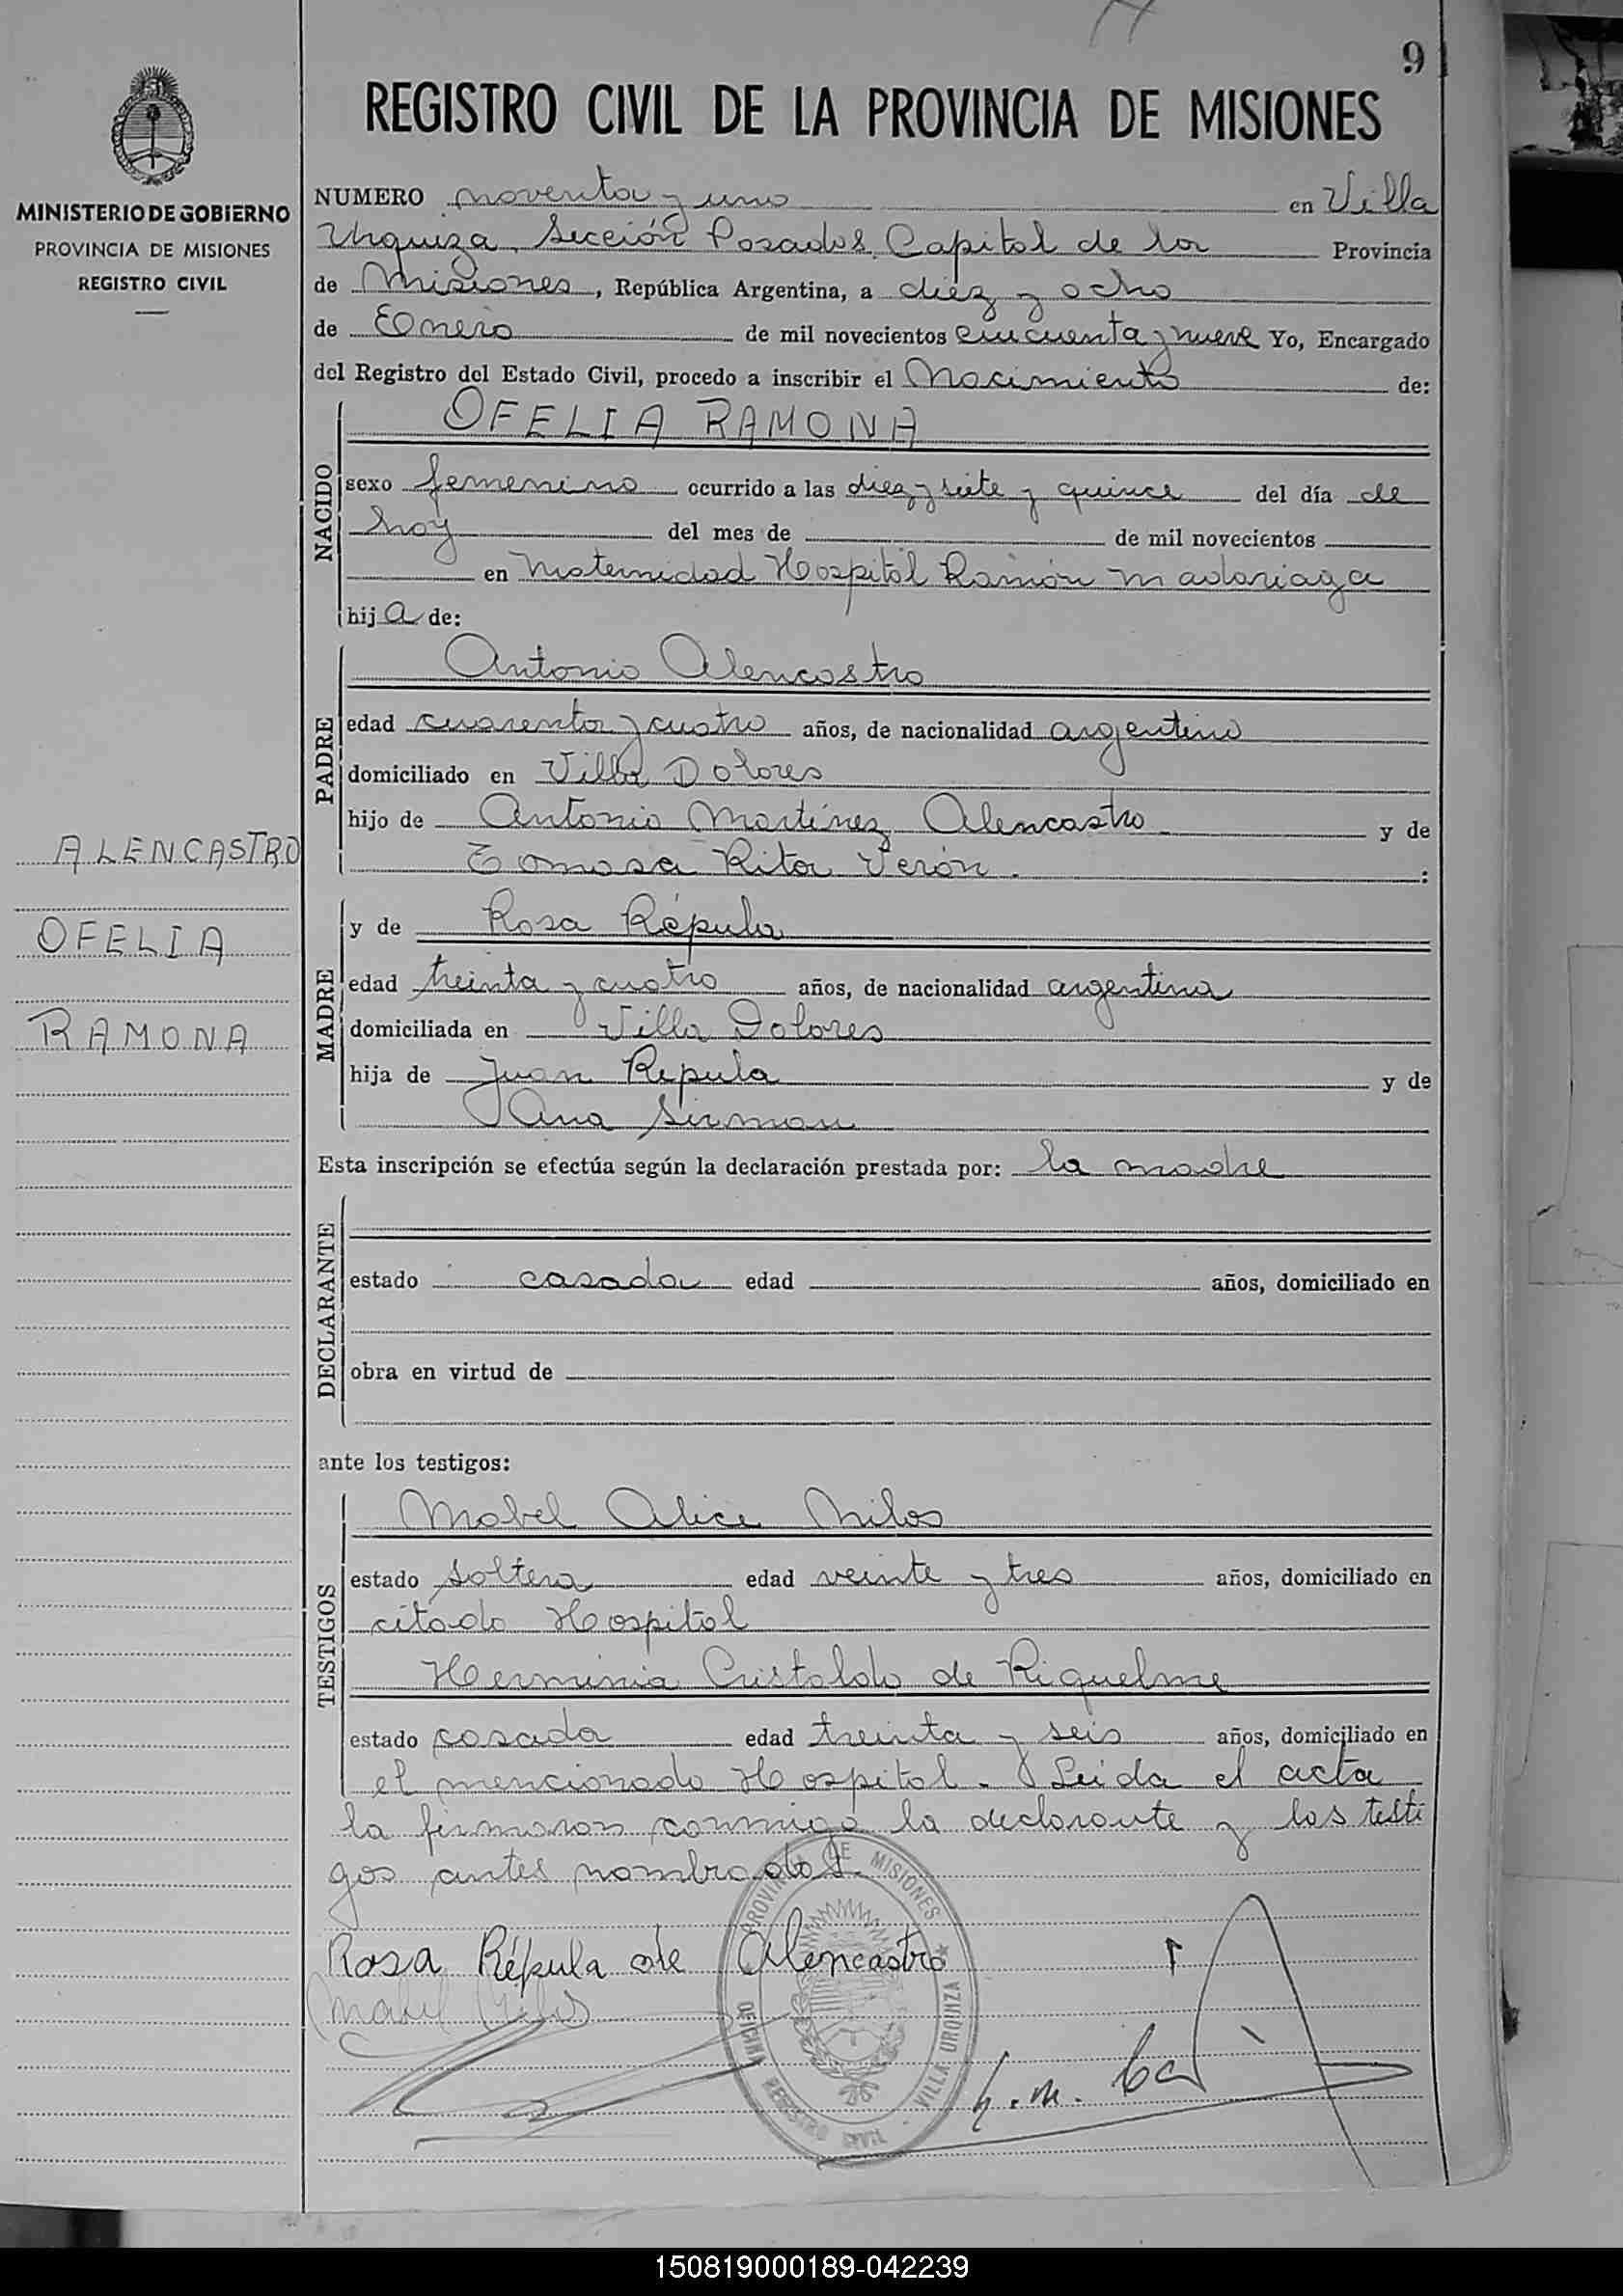 91
REGISTRO CIVIL DE LA PROVINCIA DE MISIONES
MINISTERIO DE GOBIERNO
PROVINCIA DE MISIONES
REGISTRO CIVIL
NUMERO noventa y uno en Villa
Urquiza, Sección Posadas, Capital de la Provincia
de Misiones, República Argentina, a diez y ocho
de Enero de mil novecientos cincuenta y nueve Yo, Encargado
del Registro del Estado Civil, procedo a inscribir el Nacimiento de:
NACIDO
OFELIA RAMONA
sexo femenino ocurrido a las diez y siete y quince del día de
hoy del mes de de mil novecientos
en Maternidad Hospital Ramón Madariaga
hija de:
PADRE
Antonio Alencastro
edad cuarenta y cuatro años, de nacionalidad argentino
domiciliado en Villa Dolores
hijo de Antonio Martínez Alencastro y de
Tomasa Rita Verón. :
ALENCASTRO
OFELIA
RAMONA
MADRE
y de Rosa Répula
edad treinta y cuatro años, de nacionalidad argentina
domiciliada en Villa Dolores
hija de Juan Répula y de
Ana Sirman
Esta inscripción se efectúa según la declaración prestada por: la madre
DECLARANTE
estado casada edad años, domiciliado en
obra en virtud de
ante los testigos:
TESTIGOS
Mabel Alice Milos
estado soltera edad veinte y tres años, domiciliado en
citado Hospital
Herminia Cristaldo de Riquelme
estado casada edad treinta y seis años, domiciliado en
el mencionado Hospital. Leida el acta
la firmaron conmigo la declarante y los testi
gos antes nombrados.
Rosa Répula de Alencastro
Mabel Milos
PROVINCIA DE MISIONES
OFICINA REGISTRO CIVIL - VILLA URQUIZA
150819000189-042239